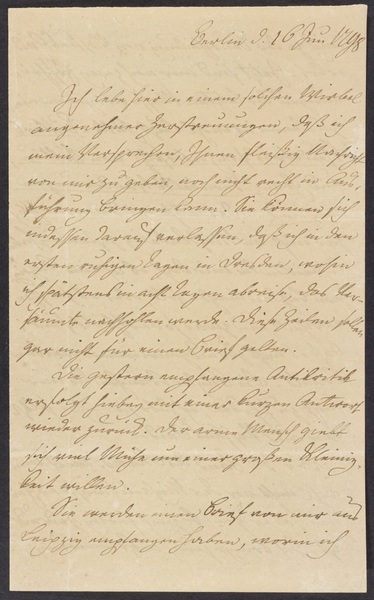 Berlin d. 16 Jun 1798
Ich lebe hier in einem solchen Wirbel
angenehmer Zerstreuungen, daß ich
mein Versprechen, Ihnen fleißig Nachricht
von mir zu geben, noch nicht recht in Aus-
führung bringen kann. Sie können sich
indessen darauf verlassen, daß ich in den
ersten ruhigen Tagen in Dresden, wohin
ich spätstens in acht Tagen abreise, das Ver-
säumte nachhohlen werde. Diese Zeilen sollen
gar nicht für einen Brief gelten.
Die gestern empfangene Antikritik
erfolgt hiebey mit einer kurzen Antwort
wieder zurück. Der arme Mensch giebt
sich viel Mühe um einer großen Kleinig-
keit willen.
Sie werden einen Brief von mir aus
Leipzig empfangen haben, worin ich